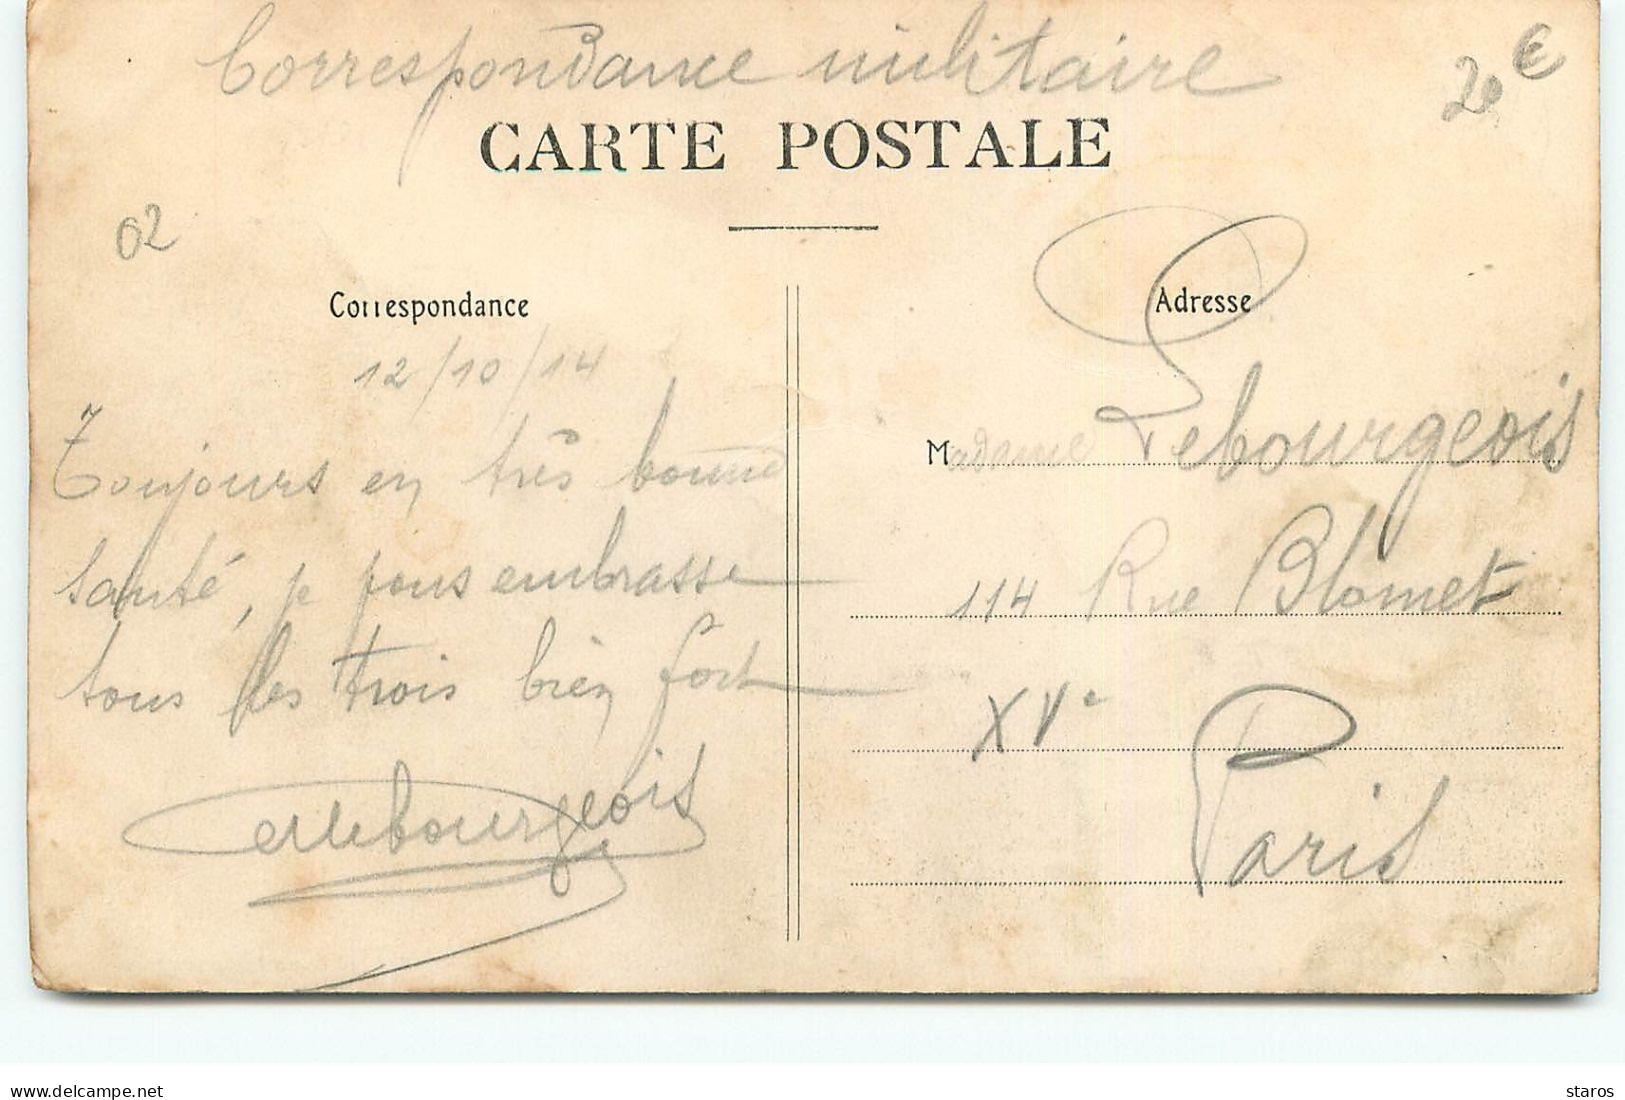 Correspondance militaire
20 €
CARTE POSTALE
02
Correspondance
12/10/14
Toujours en très bonne
santé, je vous embrasse
tous les trois bien fort
Lebourgeois
Adresse
Madame Lebourgeois
114 Rue Blomet
XVe
Paris
delcampe.net
staros